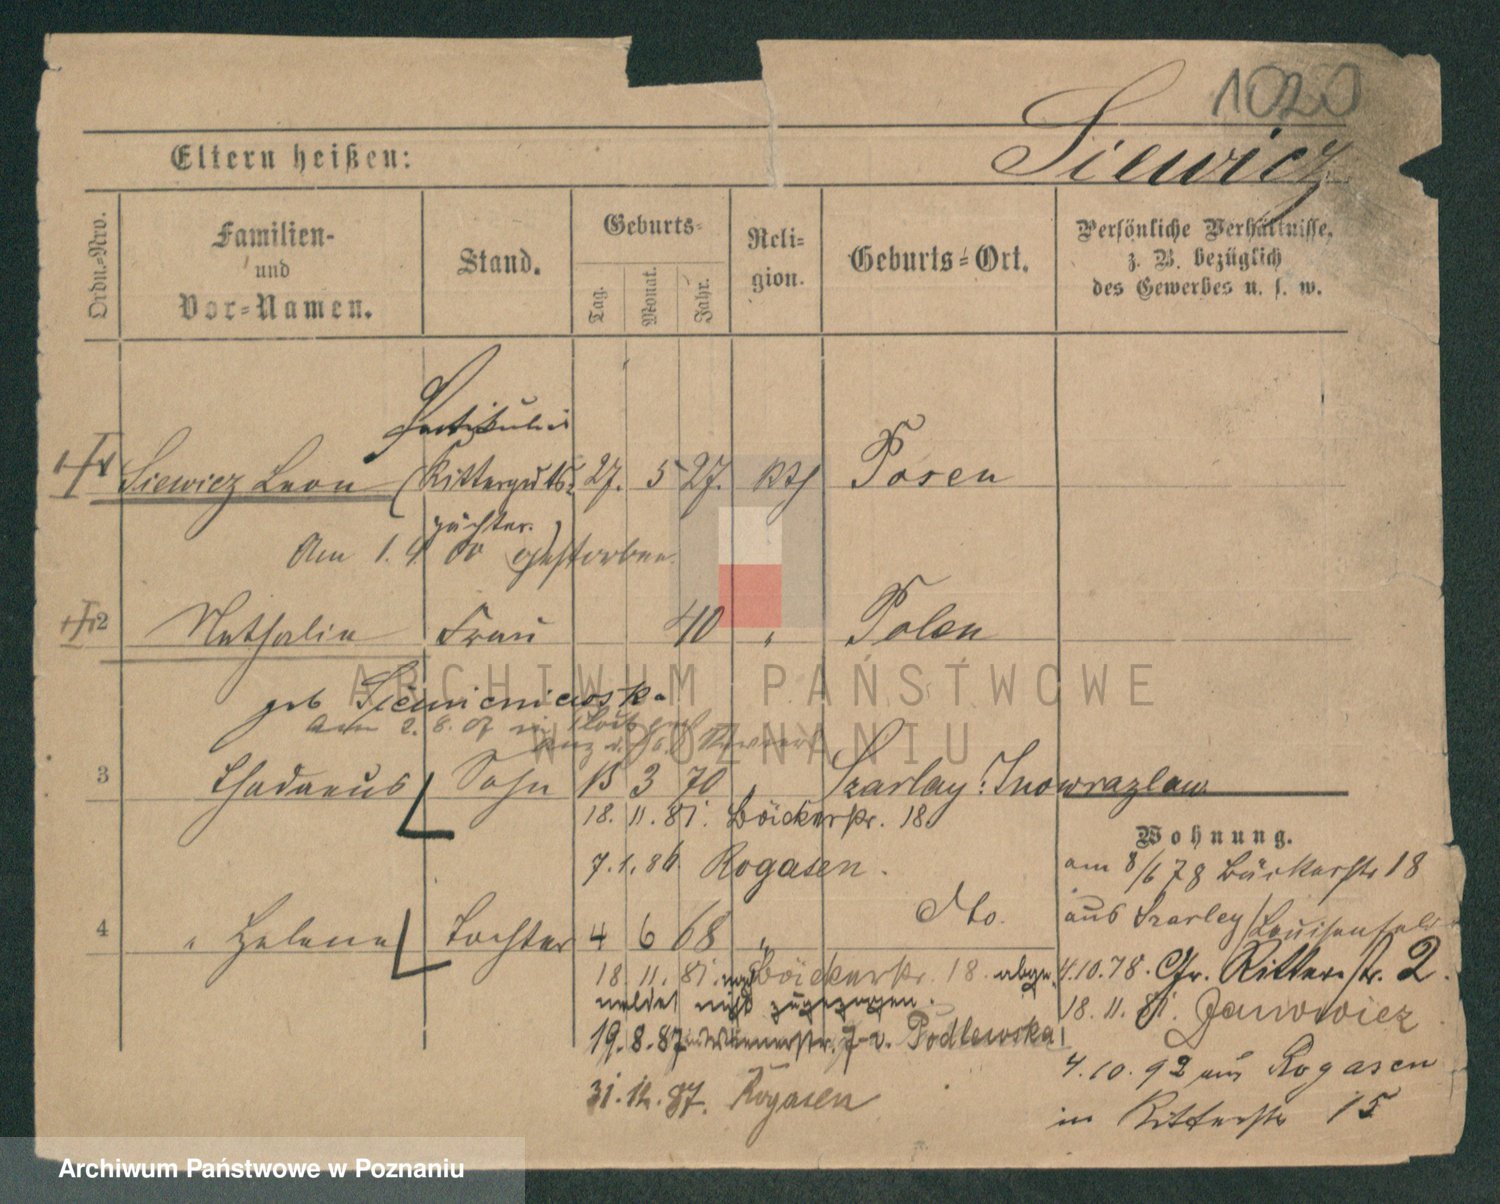 1020
Siewicz
Eltern heißen:
Ordn.-Nro.
Familien-
und
Vor-Namen.
Stand.
Geburts-
Tag.
Monat.
Jahr.
Reli-
gion.
Geburts-Ort.
Persönliche Verhältnisse,
z. B. bezüglich
des Gewerbes u. s. w.
Partikulier
1 Siewicz Leon (Ritterguts- 27. 5 27. kth Posen
pächter.)
Am 1. 4 00 gestorben
2 Nathalia Frau 40 " Polen
geb
am 2. 8. 07
3 Thadaeus Sohn 13 3 70 " Szarlay: Inowrazlaw
18. 11. 81. Bäckerstr. 18.
7. 1. 86 Rogasen.
4 " Helena Tochter 4 6 68 " dto.
18 11. 81. Bäckerstr. 18. abge-
meldet nicht zugezogen.
19. 8. 87 Wienerstr. 7 Podlewska
31. 12. 87. Rogasen
Wohnung.
am 8/6 78 Bäckerstr 18
aus Szarley/Louisenfeld
4.10.78. Gr. Ritterstr. 2.
18. 11. 81. Janowiez
4. 10. 92 aus Rogasen
in Ritterstr 15
ARCHIWUM PAŃSTWOWE
W POZNANIU
Archiwum Państwowe w Poznaniu